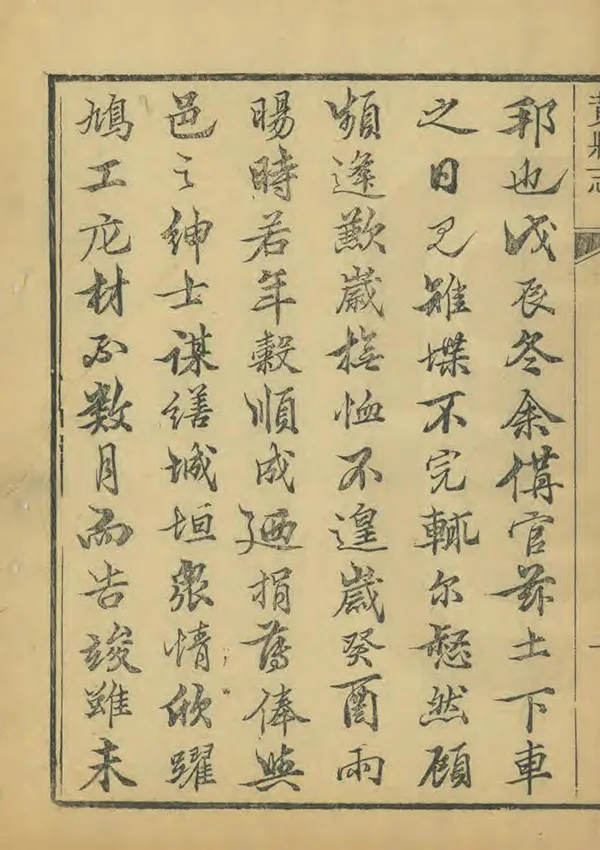 黃縣志
邦也戊辰冬余備官茲土下車
之日見雉堞不完輒尔惄然顧
頻逢歉歲撫恤不遑歲癸酉雨
暘時若年穀順成廼捐薄俸與
邑之紳士謀繕城垣衆情欣躍
鳩工庀材不數月而告竣雖未